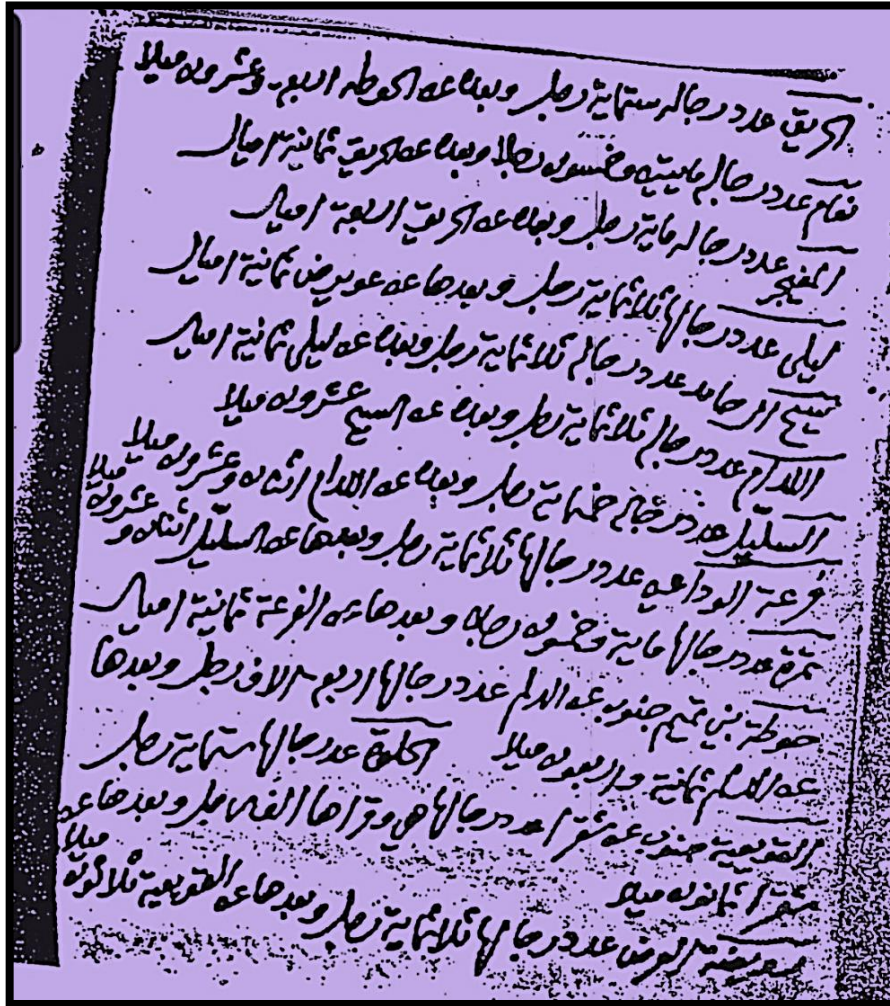 الحريق عدد رجاله ستماية رجل وبعده عن الحوطه اربع وعشرون ميلا
نعام عدد رجاله مايتين وخمسون رجلا وبعده عن الحريق ثمانية اميال
المفيجر عدد رجاله ماية رجل وبعده عن الحريق اربعة اميال
ليلى عدد رجالها ثلاثماية رجل وبعدها عن ثمانية اميال
سيح ال حامد عدد رجاله ثلاثماية رجل وبعده عن ليلى ثمانية اميال
اللدام عدد رجاله ثلاثماية رجل وبعده عن السيح عشرون ميلا
السليّل عدد رجاله خمسماية رجل وبعده عن اللدام اثنان وعشرون ميلا
فرعة الوداعين عدد رجالها ثلاثماية رجل وبعدها عن السليّل اثنان وعشرون ميلا
تمرة عدد رجالها ماية وخمسون رجلا وبعدها عن الفرعة ثمانية اميال
حوطة بني تميم جنوب عن الدلم عدد رجالها اربع الاف رجل وبعدها
عن الدلم ثمانية واربعون ميلا الحلوة عدد رجالها ستماية رجل
القويعية جنوب عن شقرا عدد رجالها هي وقراها الفين رجل وبعدها عن
شقرا ثمانون ميلا
العرض عدد رجالها ثلاثماية رجل وبعدها عن القويعية ثلاثون ميلا